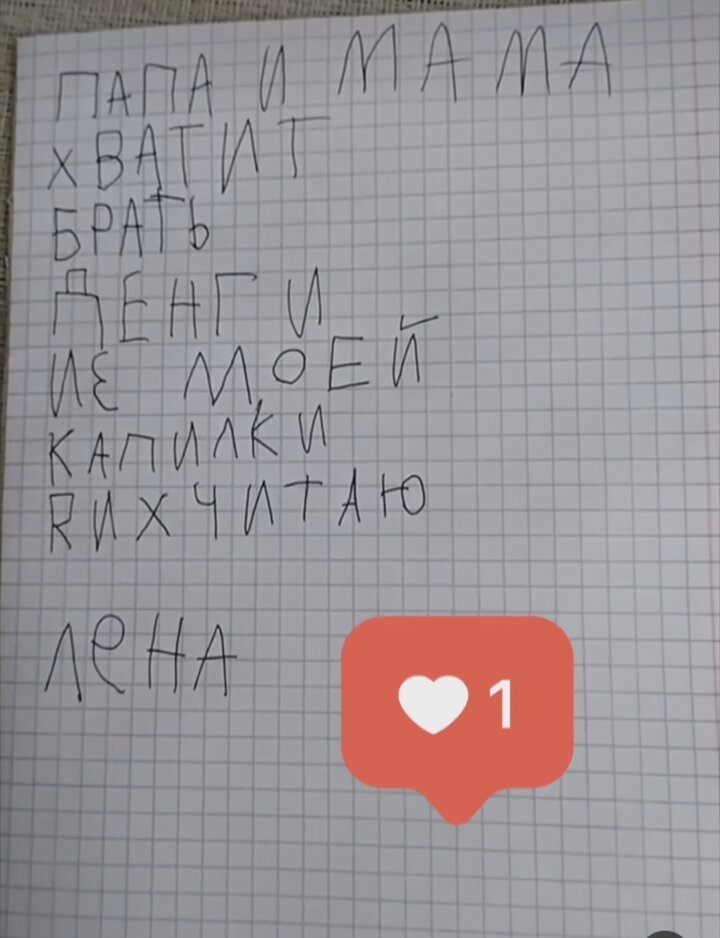 ПАПА И МАМА
ХВАТИТ
БРАТЬ
ДЕНГИ
ИЗ МОЕЙ
КАПИЛКИ
Я ИХ ЧИТАЮ
ЛЕНА
1